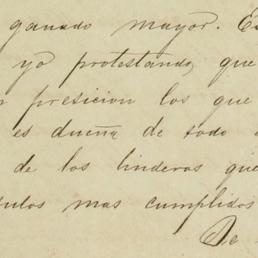 ganado mayor. Es
yo protestando, que
presicion los que
es dueña de todo
de los linderos que
tulos mas cumplidos
De